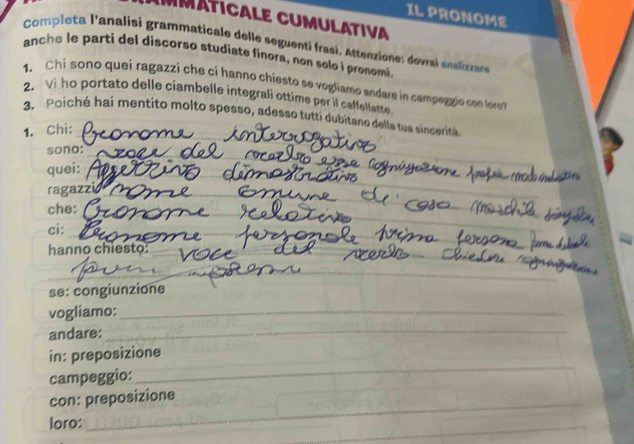 MMATICALE CUMULATIVA
IL PRONOME
Completa l'analisi grammaticale delle seguenti frasi. Attenzione: dovrai analizzare
anche le parti del discorso studiate finora, non solo i pronomi.
1. Chi sono quei ragazzi che ci hanno chiesto se vogliamo andare in campeggio con loro?
2. Vi ho portato delle ciambelle integrali ottime per il caffellatte.
3. Poiché hai mentito molto spesso, adesso tutti dubitano della tua sincerità.
1. Chi: pronome interrogativo
sono: voce del verbo essere
quei: Aggettivo dimostrativo
ragazzi nome comune di cosa maschile
che: Pronome relativo
ci: Pronome personale prima persona
hanno chiesto: voce del verbo chiedere
se: congiunzione
vogliamo:
andare:
in: preposizione
campeggio:
con: preposizione
loro: